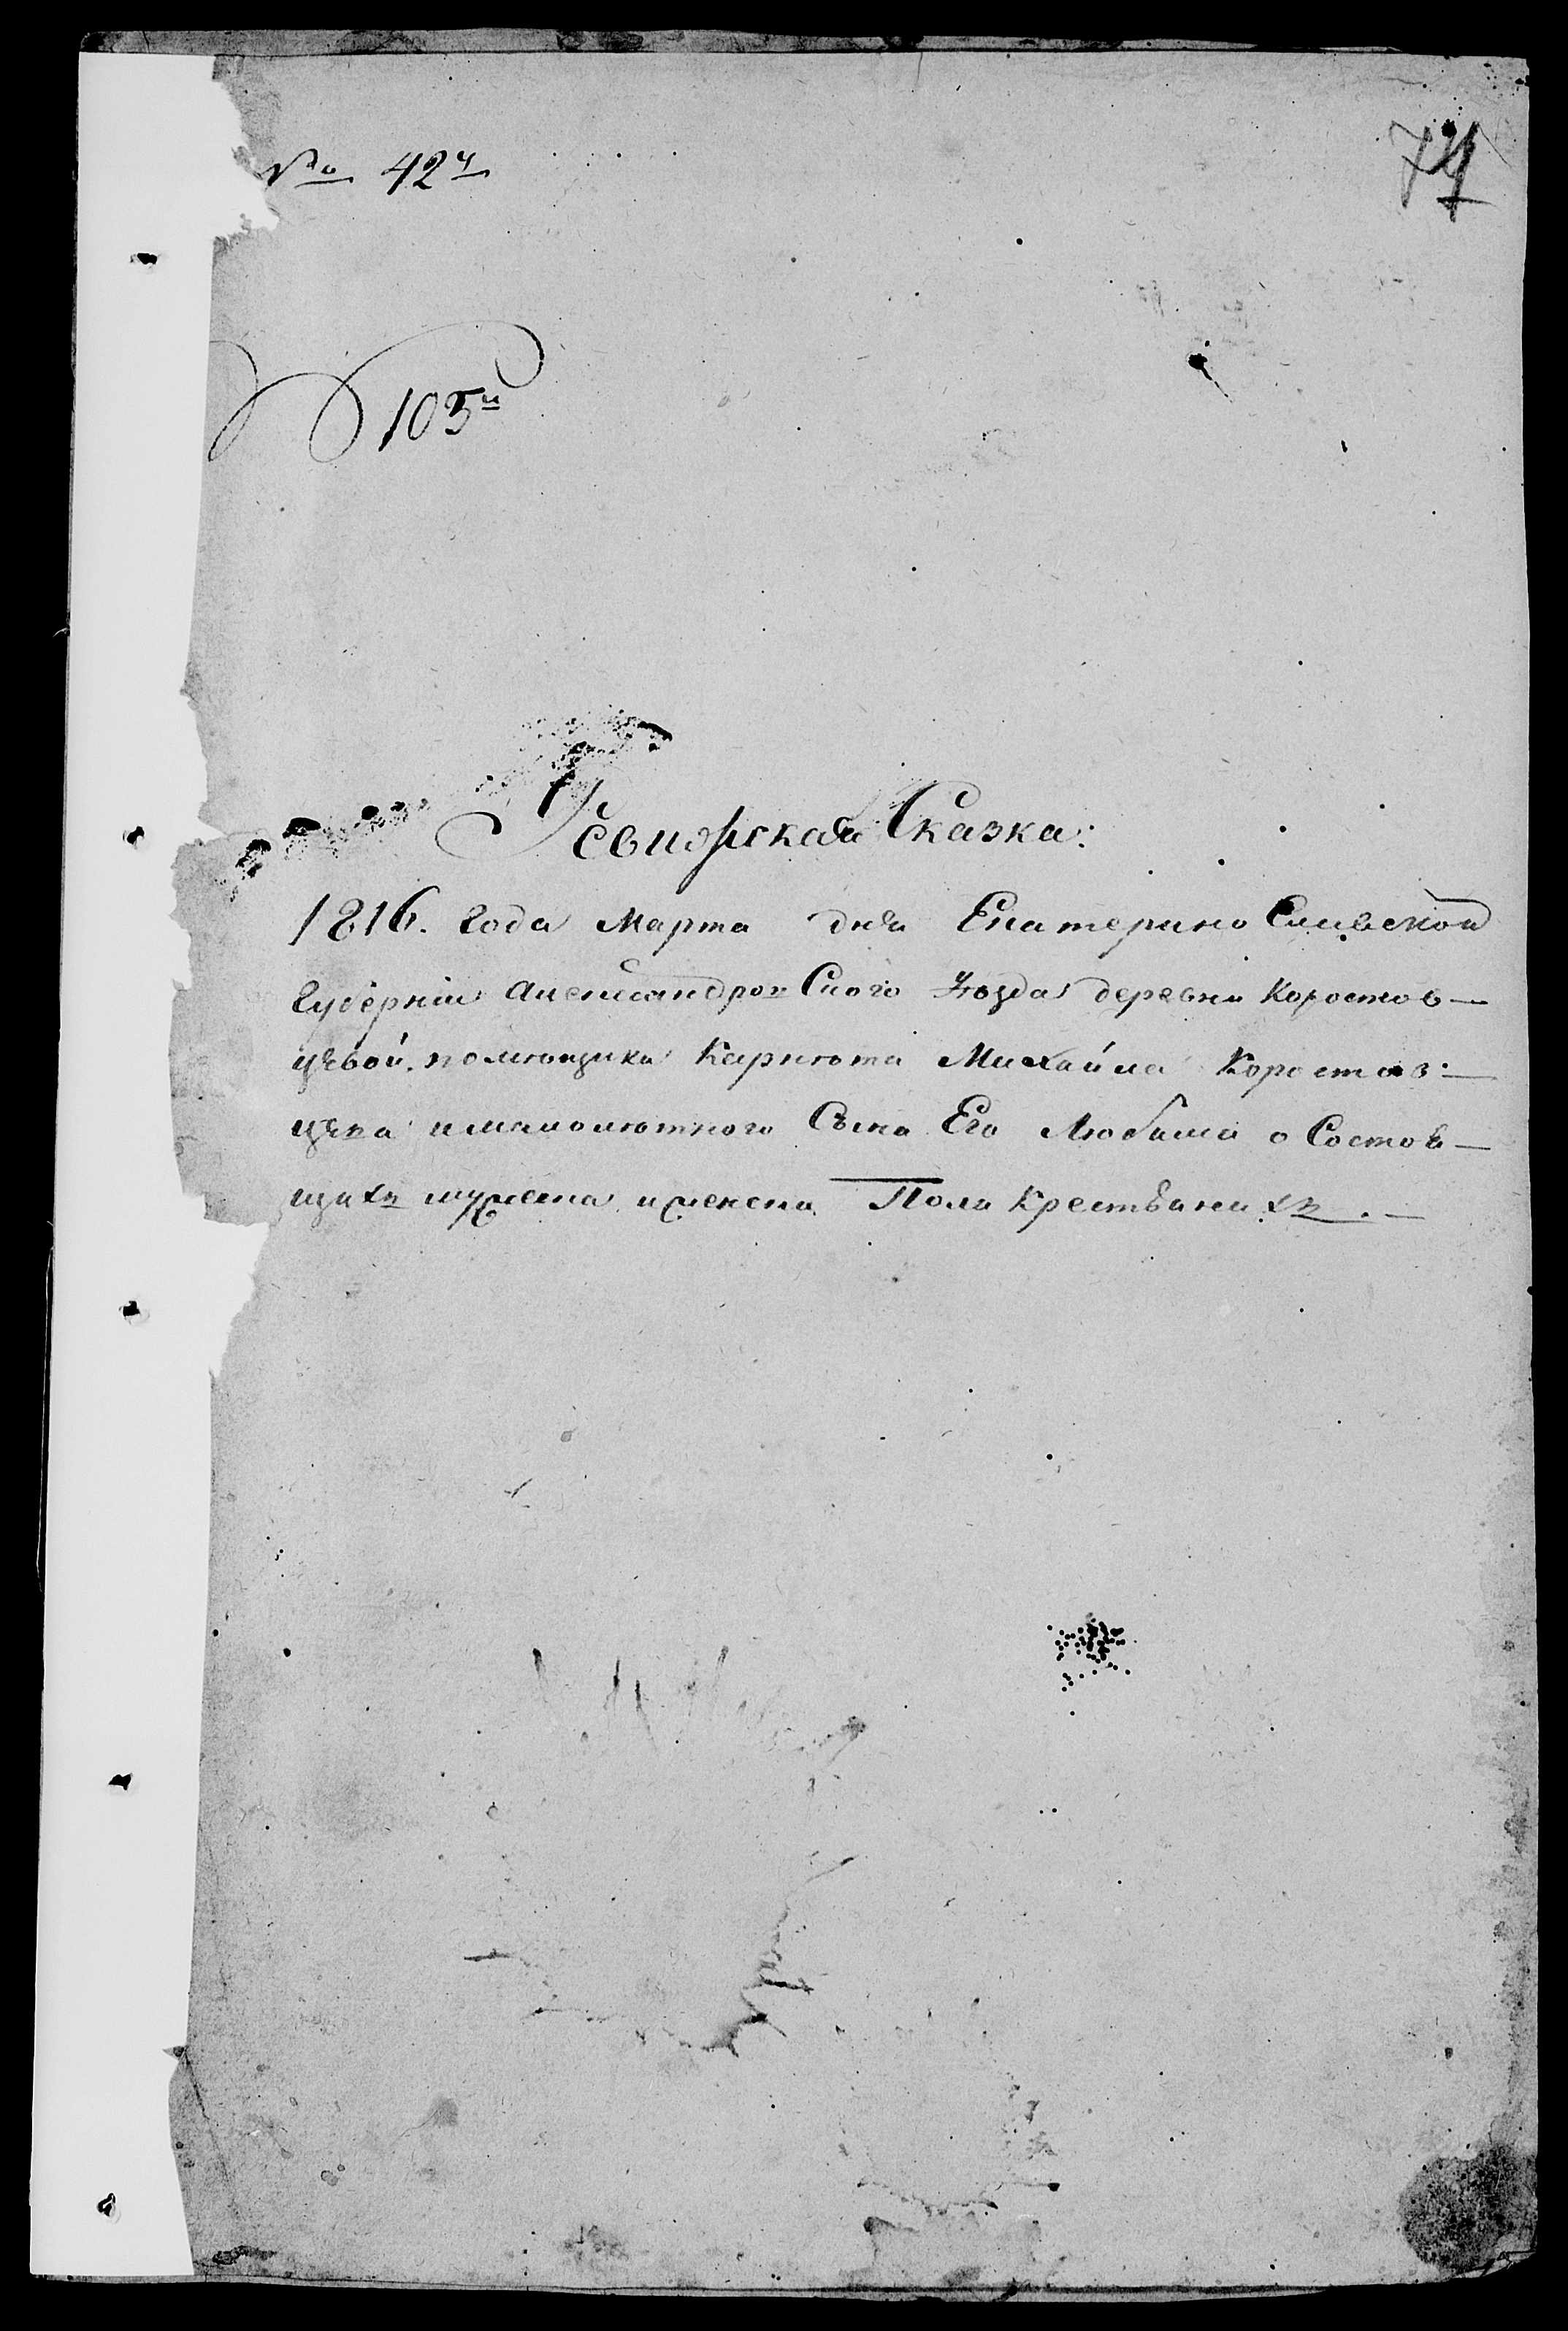 № 42й
74
105й
Ревизская Сказка:
1816. года Марта дня Екатерино Славской
Губернии Александров Ского уезда деревни Коростов—
цевой. помещика Карнета Михайла Коростов:—
цева и малолютного Сына Его Любима о Состоя—
щихъ мужеска и женска Пола Крестьянехъ.—